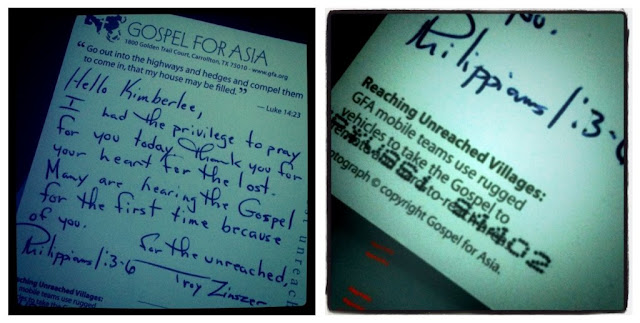 GOSPEL FOR ASIA
1800 Golden Trail Court, Carrollton, TX 75010 • www.gfa.org
“Go out into the highways and hedges and compel them
to come in, that my house may be filled.”
— Luke 14:23
Hello Kimberlee,
I had the privilege to pray
for you today. Thank you for
your heart for the lost.
Many are hearing the Gospel
for the first time because
of you.
for the unreached,
Troy Zinszer
Philippians 1:3-6
Reaching Unreached Villages:
mobile teams use rugged
to take the Gospel to
unreach
you.
Philippians 1:3-6
Reaching Unreached Villages:
GFA mobile teams use rugged
vehicles to take the Gospel to
to-re
otograph © copyright Gospel for Asia.